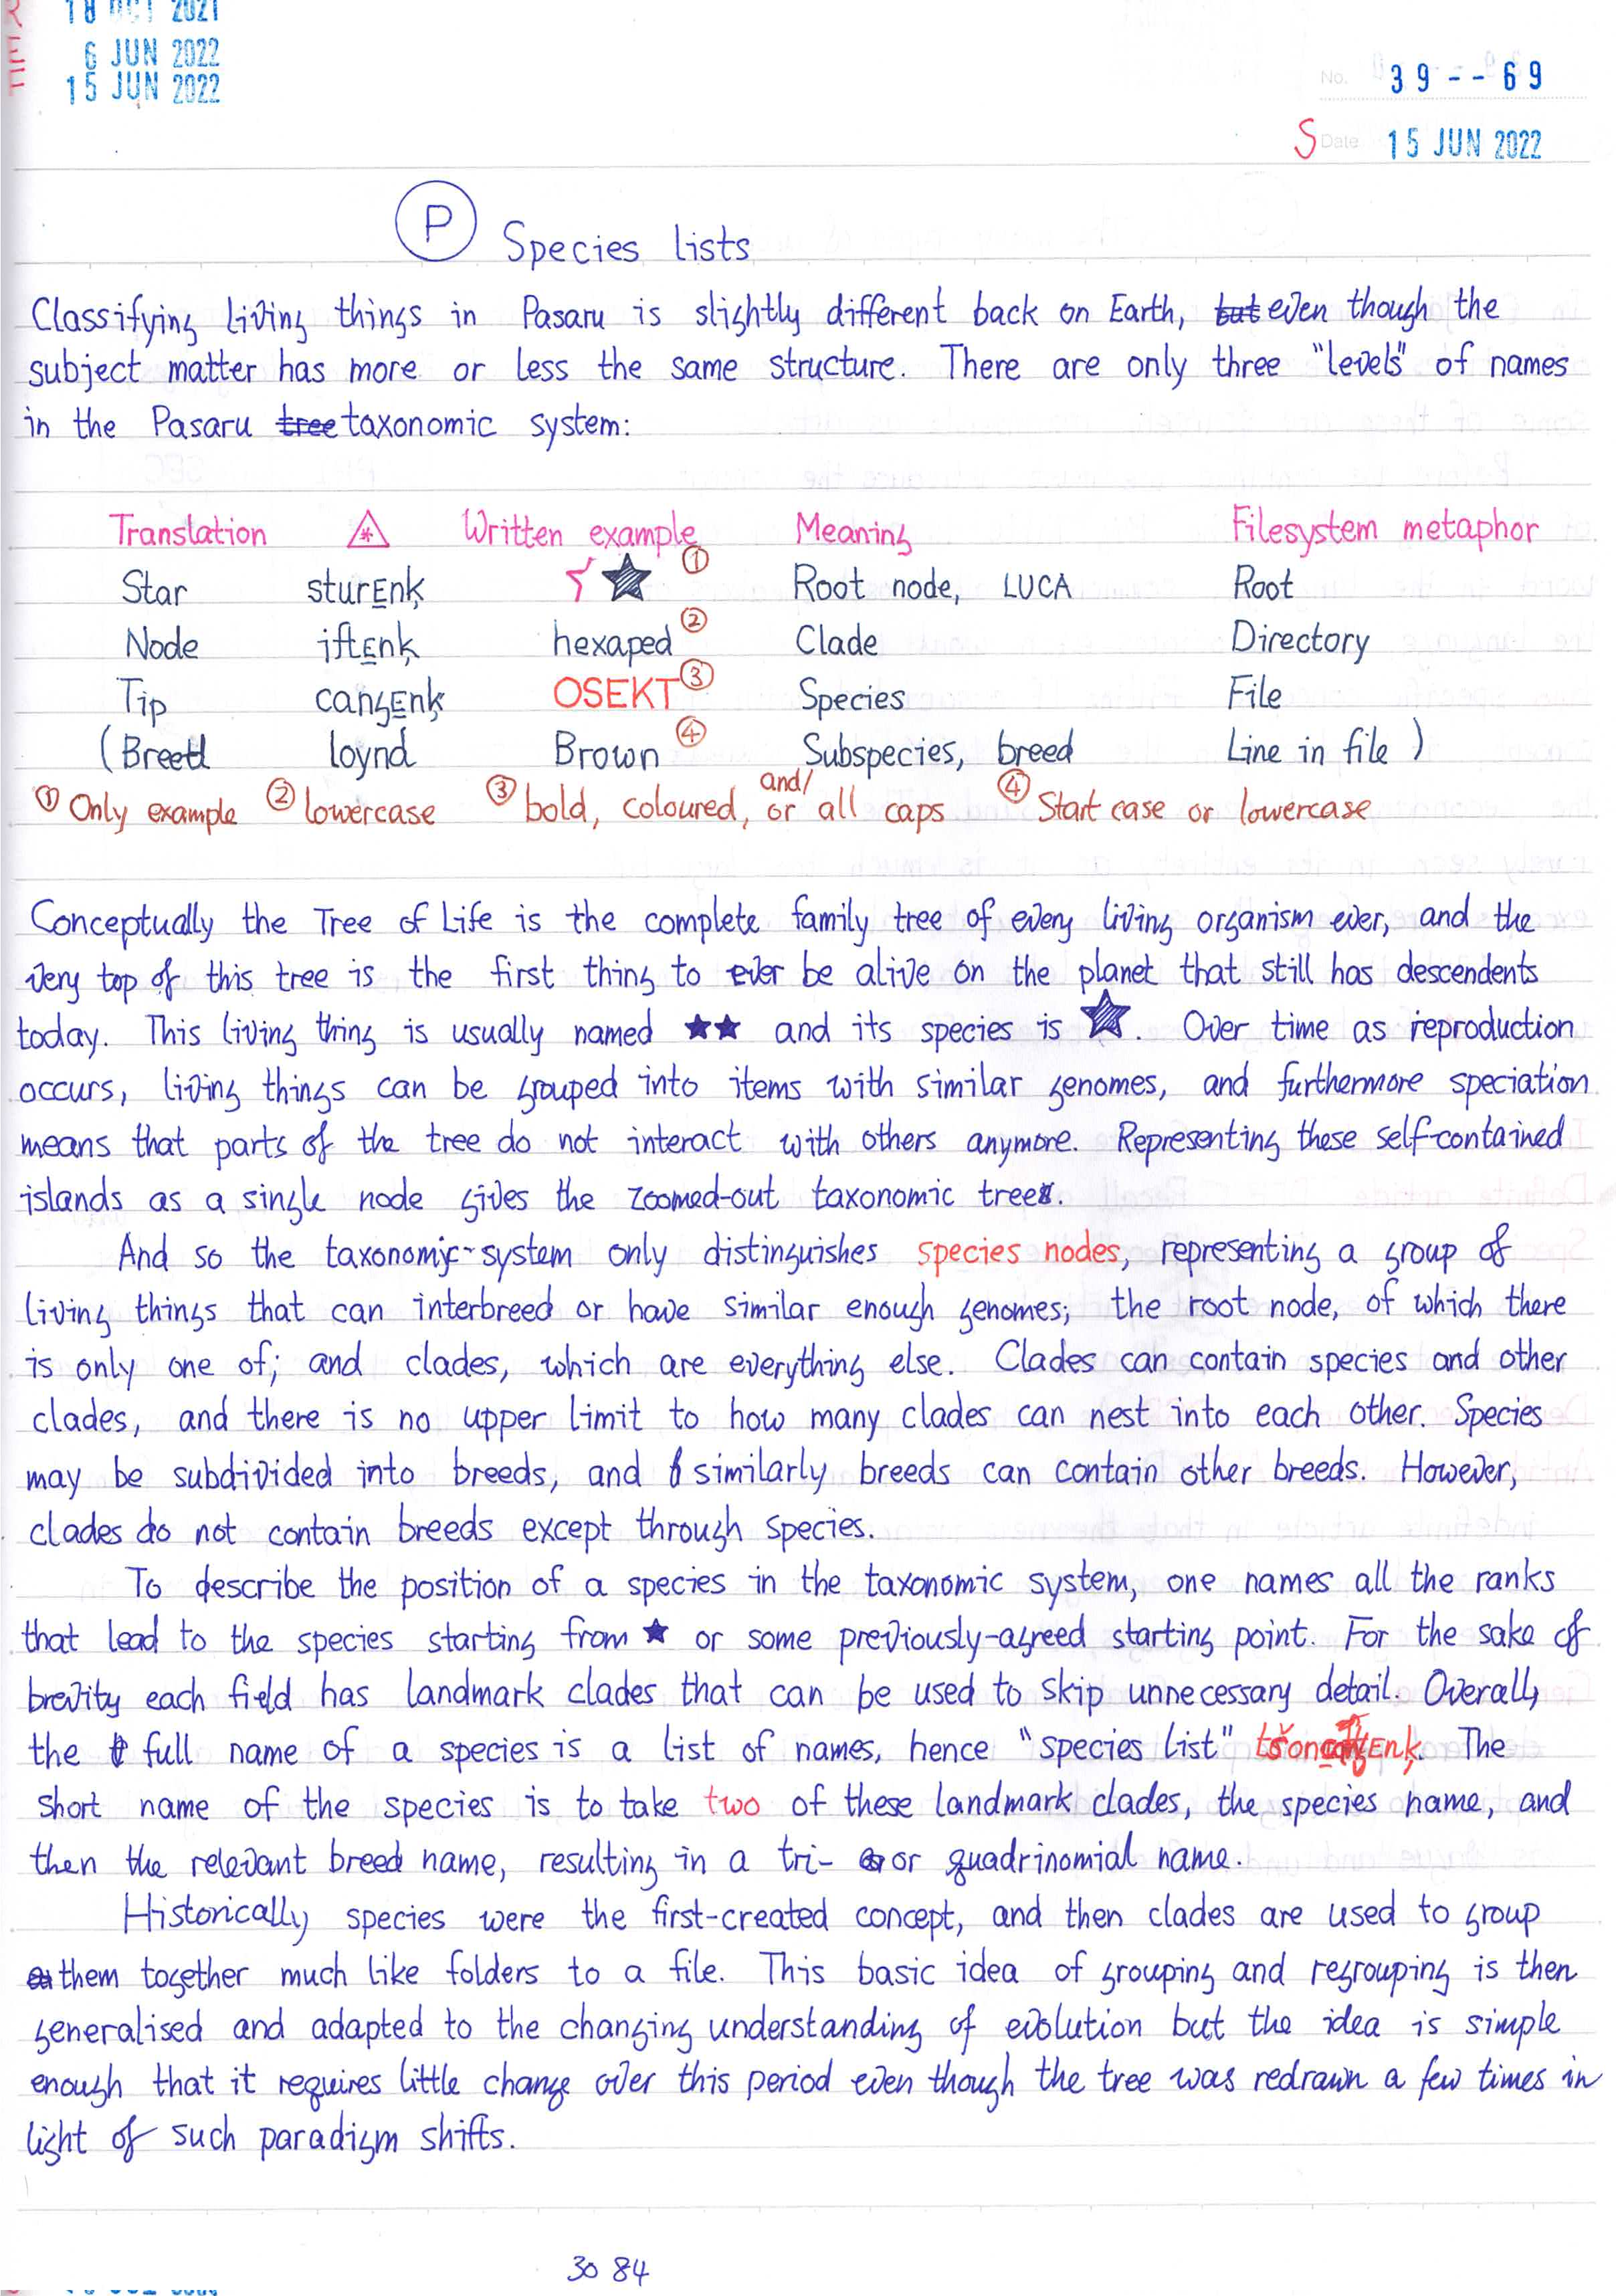 18 OCT 2021
6 JUN 2022
15 JUN 2022
No. 39--69
S Date 15 JUN 2022
P Species lists
Classifying living things in Pasaru is slightly different back on Earth, but even though the
subject matter has more or less the same structure. There are only three "levels" of names
in the Pasaru tree taxonomic system:
Translation Written example Meaning Filesystem metaphor
Star ★ ① Root node, LUCA Root
Node hexaped ② Clade Directory
Tip OSEKT ③ Species File
(Breed loynd Brown ④ Subspecies, breed Line in file)
① Only example ② lowercase ③ bold, coloured, and/or all caps ④ Start case or lowercase
Conceptually the Tree of Life is the complete family tree of every living organism ever, and the
very top of this tree is the first thing to ever be alive on the planet that still has descendents
today. This living thing is usually named ★★ and its species is ★. Over time as reproduction
occurs, living things can be grouped into items with similar genomes, and furthermore speciation
means that parts of the tree do not interact with others anymore. Representing these self-contained
islands as a single node gives the zoomed-out taxonomic tree.
And so the taxonomic system only distinguishes species nodes, representing a group of
living things that can interbreed or have similar enough genomes; the root node, of which there
is only one of; and clades, which are everything else. Clades can contain species and other
clades, and there is no upper limit to how many clades can nest into each other. Species
may be subdivided into breeds, and similarly breeds can contain other breeds. However,
clades do not contain breeds except through species.
To describe the position of a species in the taxonomic system, one names all the ranks
that lead to the species starting from ★ or some previously-agreed starting point. For the sake of
brevity each field has landmark clades that can be used to skip unnecessary detail. Overall,
the full name of a species is a list of names, hence "species list" The
short name of the species is to take two of these landmark clades, the species name, and
then the relevant breed name, resulting in a tri- or quadrinomial name.
Historically species were the first-created concept, and then clades are used to group
them together much like folders to a file. This basic idea of grouping and regrouping is then
generalised and adapted to the changing understanding of evolution but the idea is simple
enough that it requires little change over this period even though the tree was redrawn a few times in
light of such paradigm shifts.
30 84